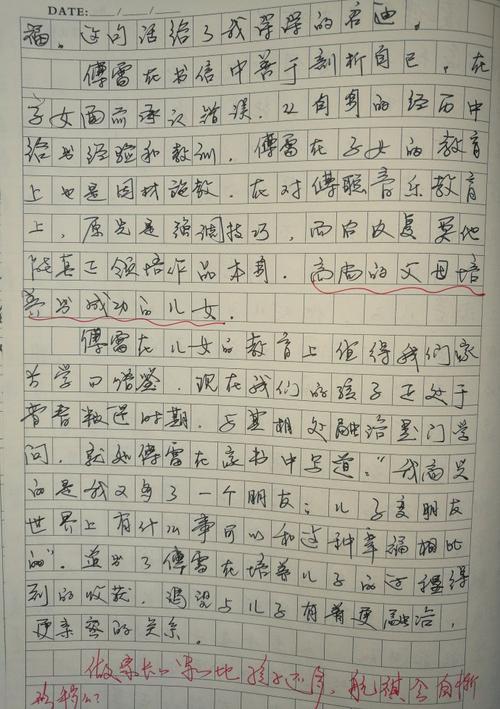 DATE: / /
福。这句话给了我深深的启迪。
傅雷在书信中善于剖析自己，在
子女面前承认错误，以自身的经历中
给出经验和教训。傅雷在子女的教育
上也是因材施教。在对傅聪音乐教育
上，原先是强调技巧，而后反复要他
能真正领悟作品本身。高尚的父母培
养出成功的儿女。
傅雷在儿女的教育上值得我们家
长学习借鉴。现在我们的孩子正处于
青春叛逆时期，与其相处融洽是门学
问。就如傅雷在家书中写道：“我高兴
的是我又多了一个朋友；儿子变朋友
世界上有什么事可以和这种幸福相比
的”。道出了傅雷在培养儿子的过程得
到的收获。渴望与儿子有着更融洽，
更亲密的关系。
做家长